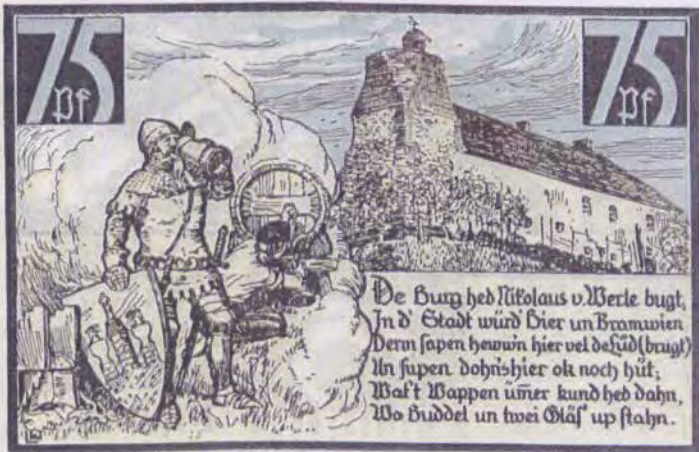 75
Pf
75
Pf
De Burg hed Nikolaus v. Werle bugt,
In d' Stadt würd' Bier un Bramwien
Denn sapen hewwn hier vel de Lüd (brugt)
Un supen dohn's hier ok noch hüt;
Waſ't Wappen üm̄er kund heb dahn,
Wo Buddel un twei Gläſ' up stahn.